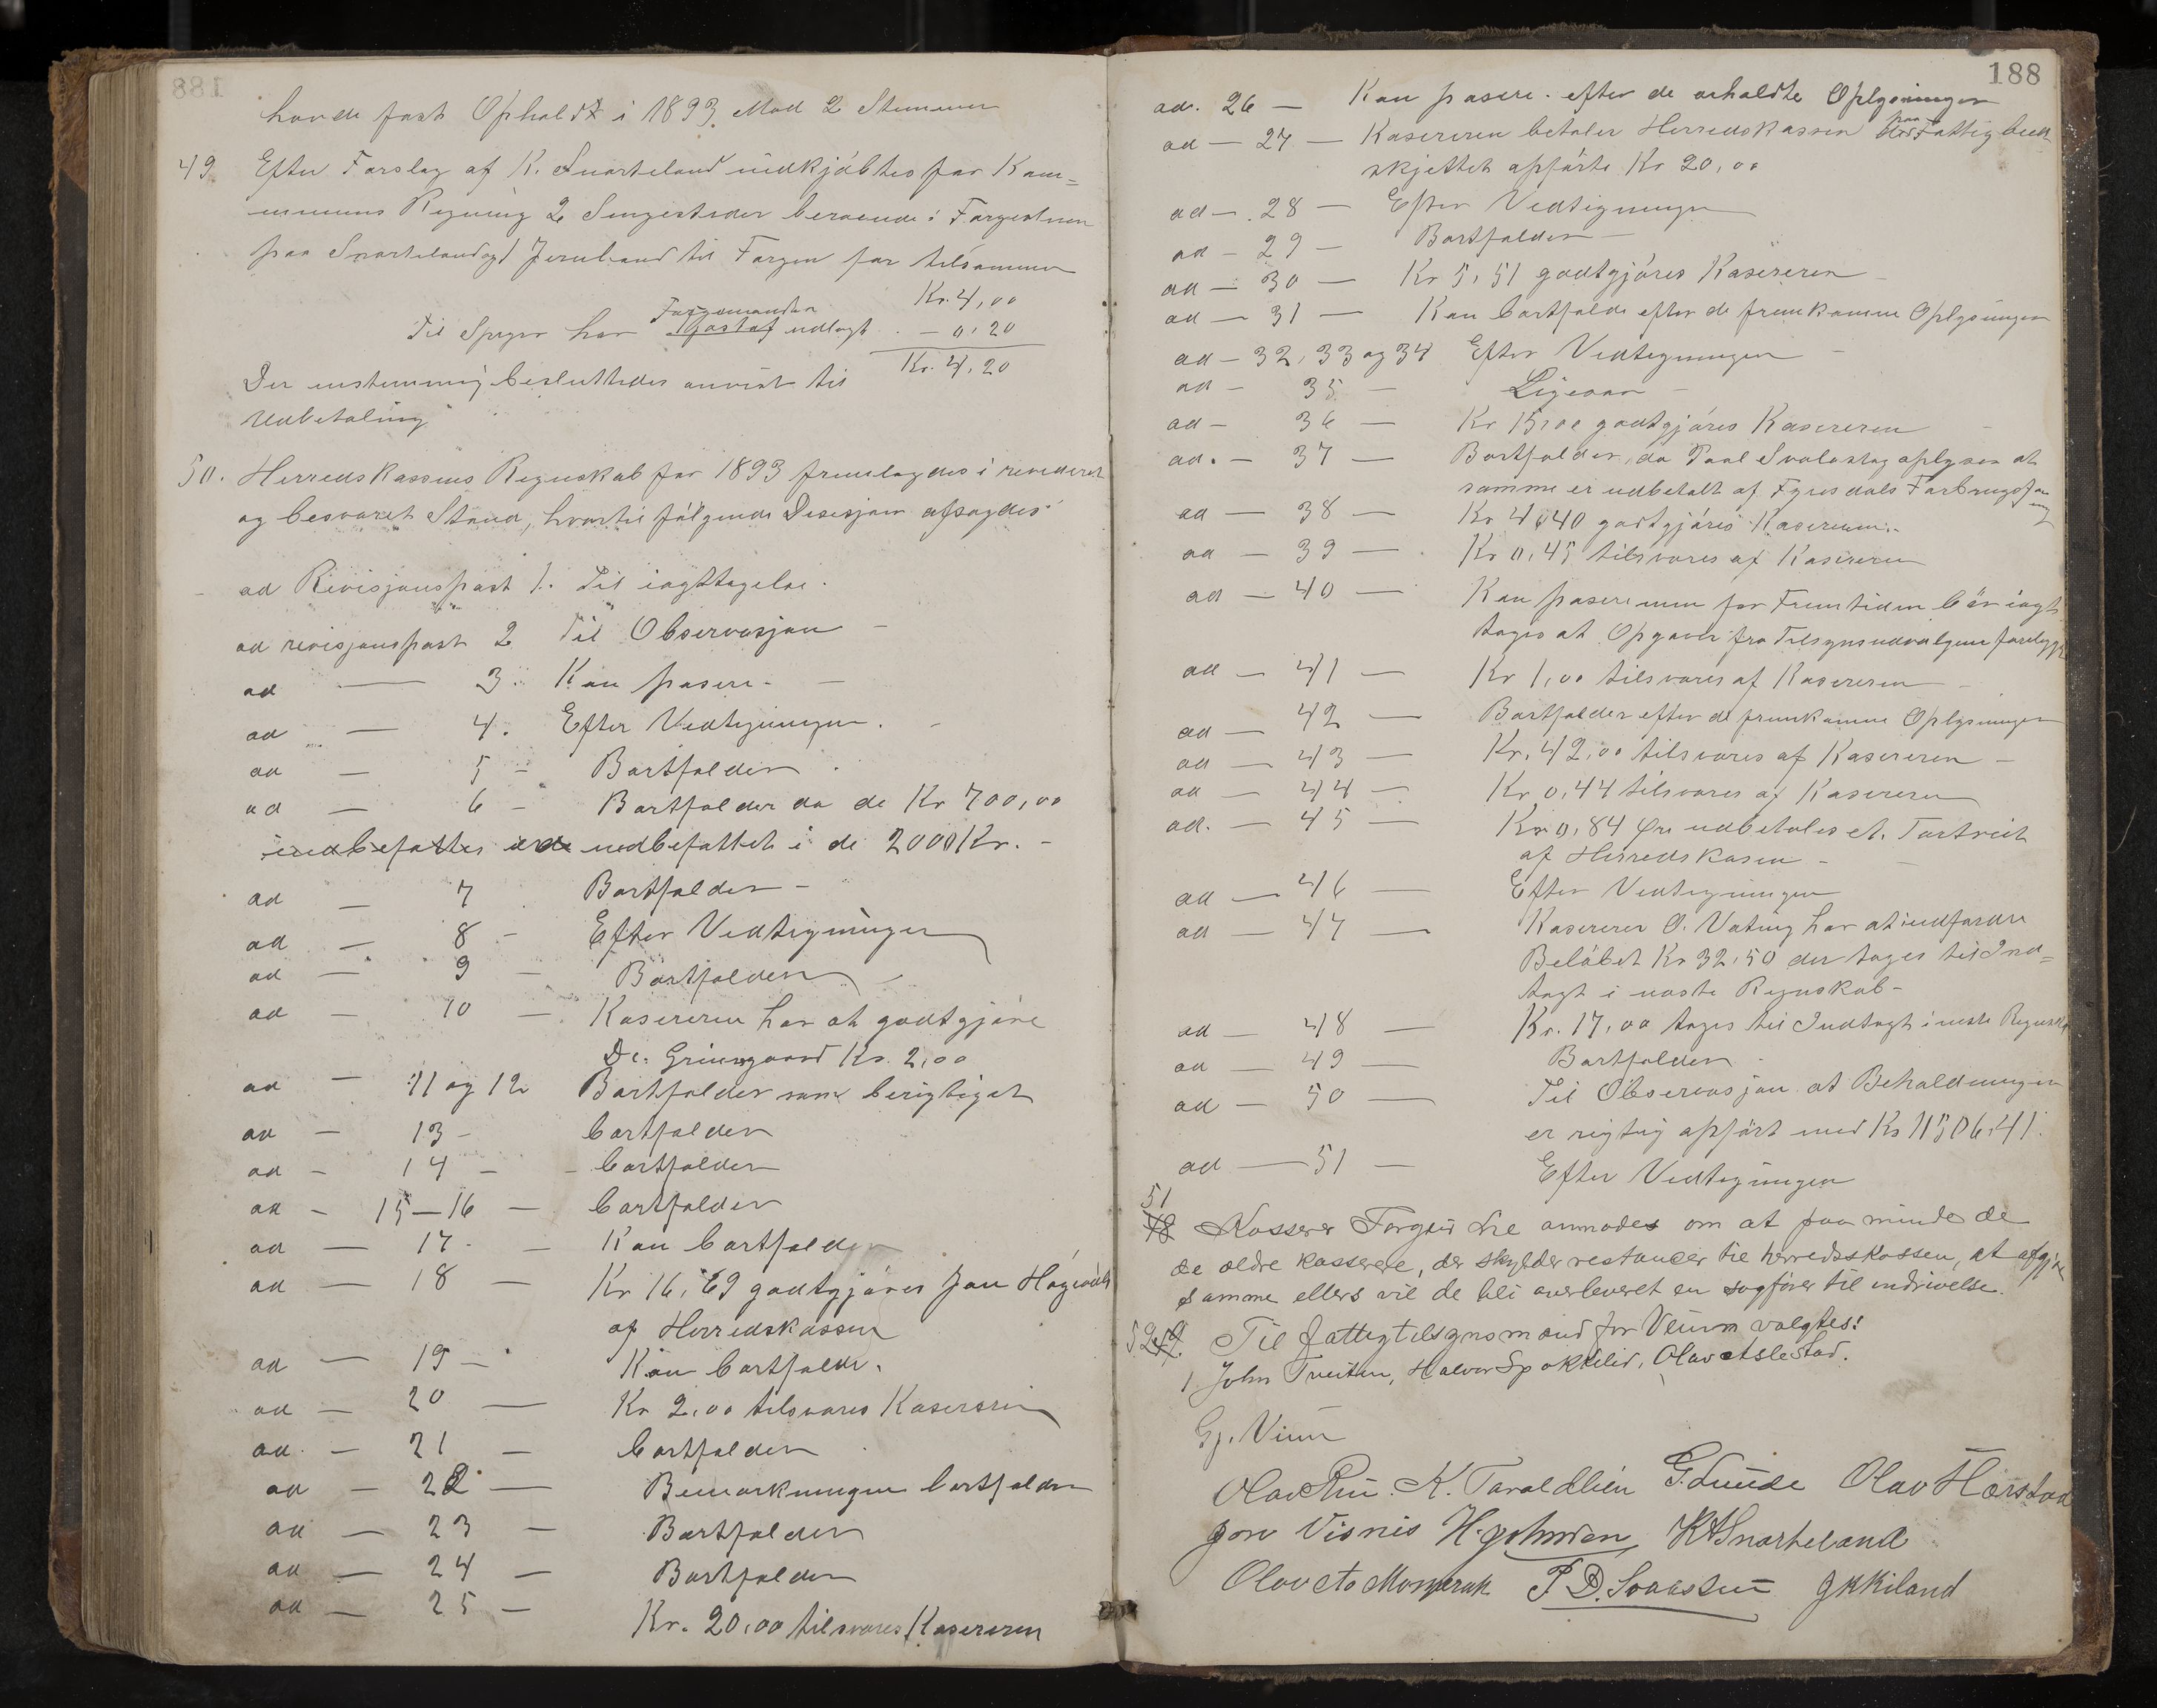 havde fast Opholdt i 1893. Mod 2 Stemmer
49. Efter Forslag af K. Snarteland indkjöbtes for Kom=
muns Regning 2 Sengesteder beroende i Fargestuen
paa Snarteland og 1 Jernbaand til Fargen for tilsammen
Kr. 4,00
Til Spiger har Forgemanden udlagt - 0,20
Kr. 4,20
Der enstemmig besluttedes anvist til
Udbetaling
50. Herredskassens Regnskab for 1893 fremlagdes i revideret
og besvaret Stand, hvortil følgende Desisjon afsagdes
ad Revisjonspost 1. Til iagttagelse.
ad revisjonspost 2 Til Observasjon -
ad — 3. Kan pasere -
ad — 4. Efter Vedtegningen. -
ad — 5 - Bortfalder.
ad — 6 - Bortfalder da de Kr 700,00
indbefattes er indbefattet i de 2000 Kr. -
ad — 7 Bortfalder -
ad — 8 - Efter Vedtegningen
ad — 9 — Bortfalder
ad — 10 — Kasereren har at godtgjöre
Dr. Grimsgaard Kr. 2,00
ad — 11 og 12 Bortfalder som berigtiget
ad — 13 - bortfalder
ad - 14 - bortfalder
ad - 15-16 — bortfalder
ad — 17 — Kan bortfalder
ad — 18 — Kr 16,69 godtgjöres Jon Högevold
af Herredskassen
ad — 19 - Kan bortfalde.
ad — 20 — Kr 2,00 tilsvares Kasereren
ad. — 21 — bortfalder
ad — 22 — Bemerkningen bortfalder
ad — 23 — Bortfalder
ad — 24 — Bortfalder
ad — 25 — Kr. 20,00 tilsvares Kasereren
188
ad. 26 — Kan pasere. efter de erholdte Oplysninger
ad — 27 — Kasereren betaler Herredskassen paa Fattigbud
skjettet opförte Kr 20,00
ad — 28 — Efter Vedtegningen
ad — 29 — Bortfalder —
ad — 30 — Kr 5,51 godtgjöres Kasereren
ad — 31 — Kan bortfalde efter de fremkomne Oplysninger
ad — 32, 33 og 34 Efter Vedtegningen
ad — 35 — Ligesaa -
ad — 36 — Kr 15,00 godtgjöres Kasereren
ad. — 37 — Bortfalder, da Paal Svalestog oplyser at
samme er udbetalt af Fyresdals Forbrugsforening
ad — 38 — Kr 4,40 godtgjöres Kasereren.
ad — 39 — Kr 0,45 tilsvares af Kasereren
ad — 40 — Kan pasere men for Fremtiden bör iagt
tages at Opgaver fra Tilsynsudvalgene foreligger
ad — 41 — Kr 1,00 tilsvares af Kasereren
ad — 42 — Bortfalder efter de fremkomne Oplysninger
ad — 43 — Kr. 42,00 tilsvares af Kasereren -
ad — 44 — Kr 0,44 tilsvares af Kasereren
ad. — 45 — Kr 0,84 Øre udbetales A. Tortveit
af Herredskasen -
ad — 46 — Efter Vedtegningen
ad — 47 — Kaserer O. Vating har at indfordre
Belöbet Kr 32,50 der tages til Ind=
tægt i neste Regnskab -
ad — 48 — Kr. 17,00 tages til Indtægt i neste Regnskab
ad — 49 — Bortfalder
ad — 50 — Til Observasjon at Beholdningen
er rigtig opfört med Kr 11506,41.
ad — 51 — Efter Vedtegningen
51 Kasserer Torgeir Lie anmodes om at paaminde de
de ældre kasserere, der skylder restancer til herredskassen, at afgjöre
samme ellers vil de bli overleveret en sagförer til inddrivelse.
52. Til fattigtilsynsmænd for Veum valgtes:
1. John Tveiten, Halvor Spokkelid, Olav Aslestad.
Gj. Vium
Olav Rui. K. Taraldlien G. Lunde Olav Hærstad
Jon Visnis H. Johnsen K A Snarteland
Olav A Momrak P D. Svaestu J K Kiland